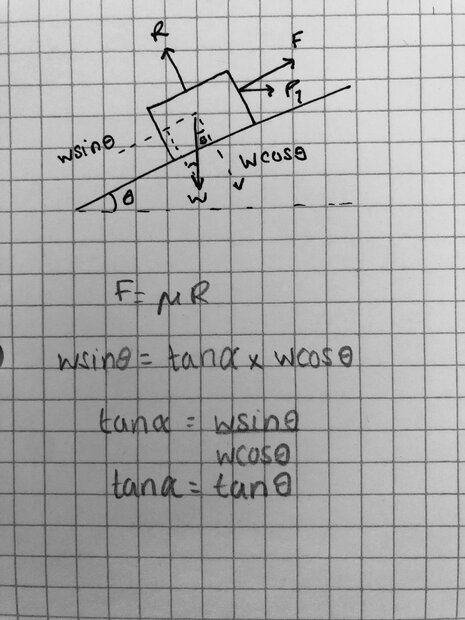 R
F
P₁
wsinθ
θ₁
wcosθ
W
θ
F = μR
wsinθ = tanα x wcosθ
tanα = wsinθ
wcosθ
tanα = tanθ